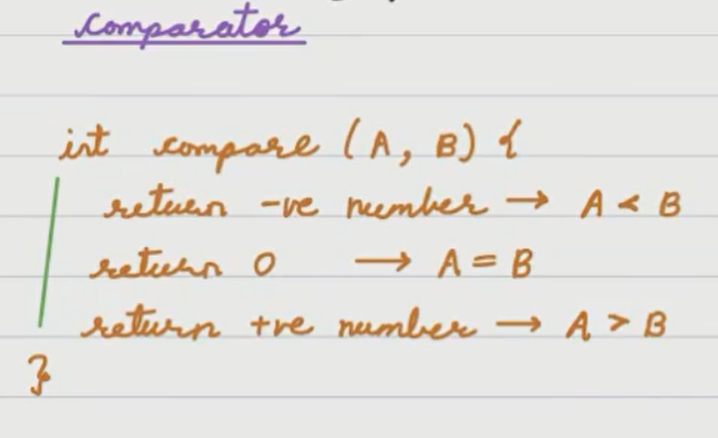 comparator
int compare (A, B) {
return -ve number → A < B
return 0 → A = B
return +ve number → A > B
}